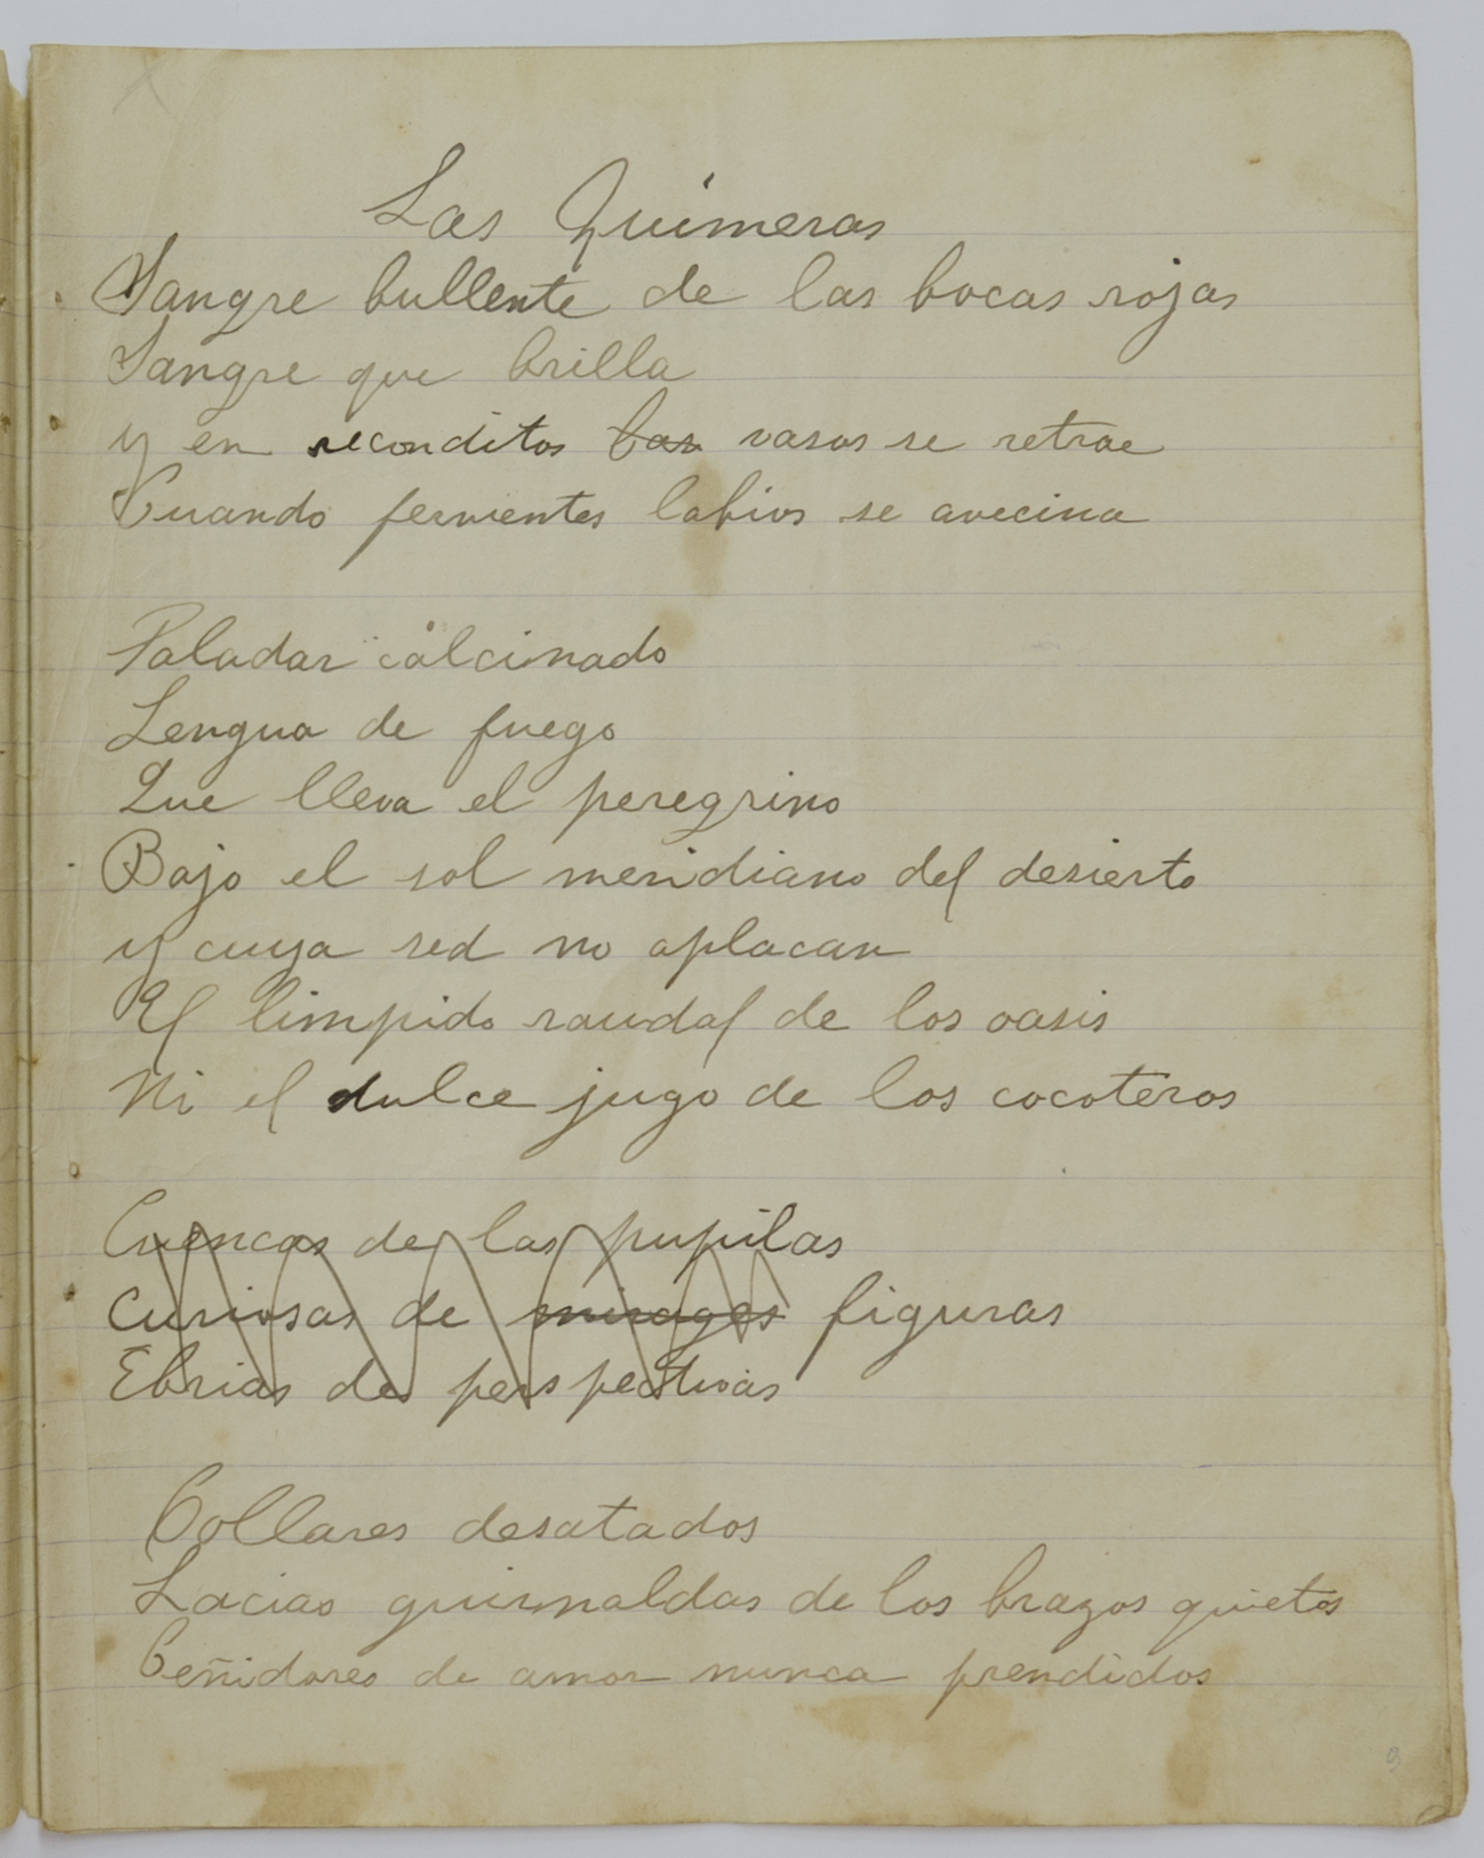 Las Quimeras
Sangre bullente de las bocas rojas
Sangre que brilla
y en reconditos las vasos se retrae
Cuando fervientes labios se avecina
Paladar calcinado
Lengua de fuego
Que lleva el peregrino
Bajo el sol meridiano del desierto
y cuya sed no aplacan
El limpido raudal de los oasis
Ni el dulce jugo de los cocoteros
Cuencas de las pupilas
Curiosas de mirages figuras
Ebrias de perspectivas
Collares desatados
Lacias guirnaldas de los brazos quietos
Ceñidores de amor nunca prendidos